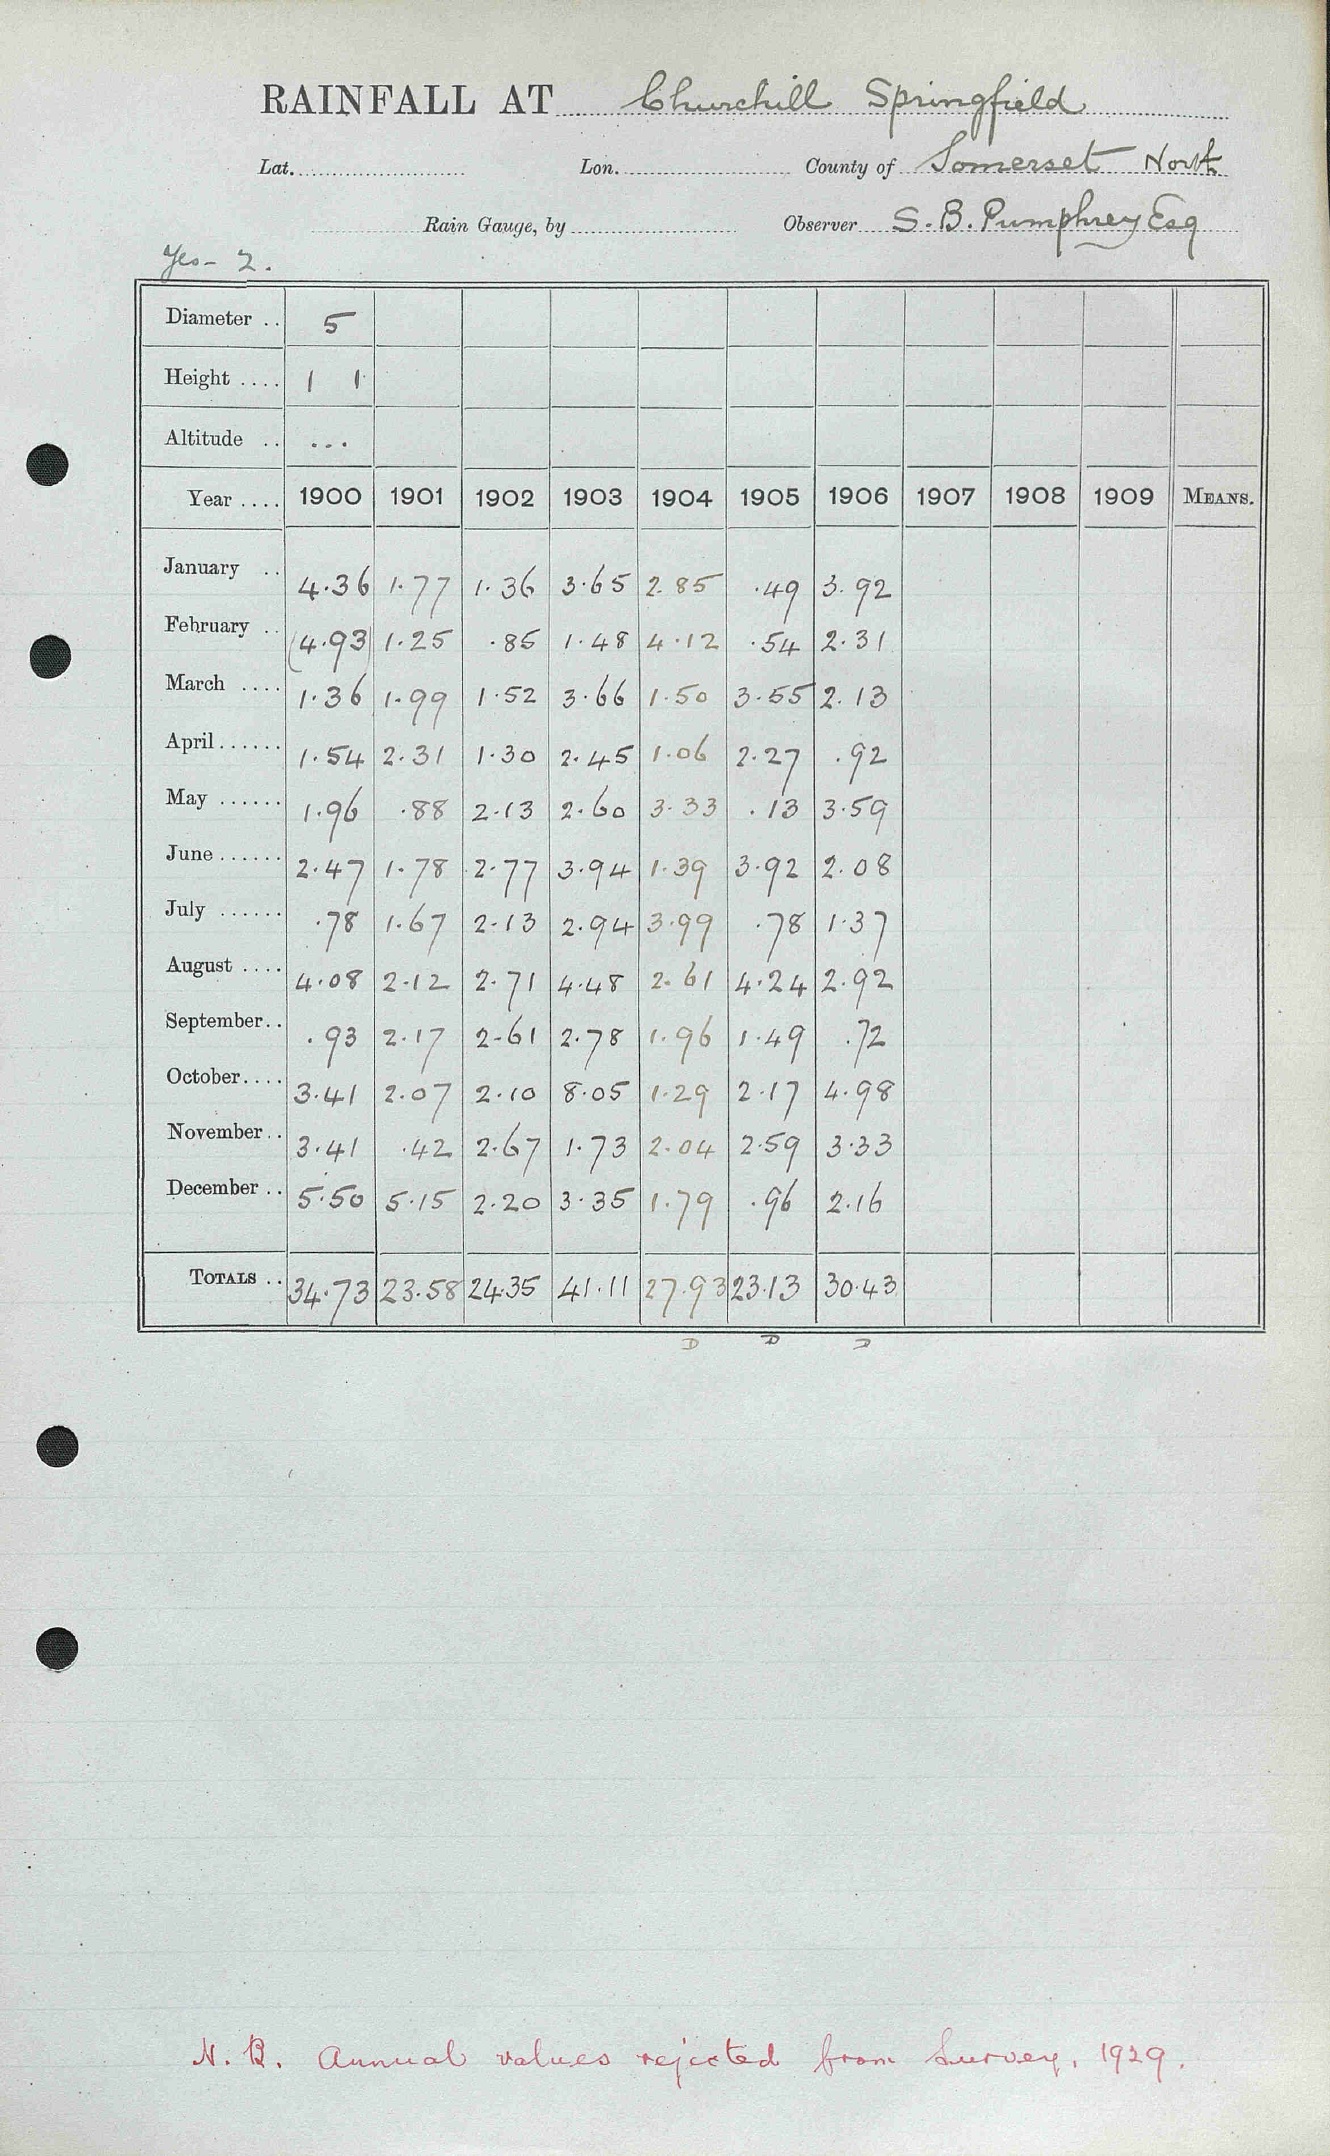 RAINFALL AT Churchill Springfield
Lat. Lon. County of Somerset North
Rain Gauge, by Observer S. B. Pumphrey Esq
Yes - 2.
Diameter .. 5
Height .... 1 1
Altitude .. ...
Year .... 1900 1901 1902 1903 1904 1905 1906 1907 1908 1909 MEANS.
January .. 4.36 1.77 1.36 3.65 2.85 .49 3.92
February .. (4.93) 1.25 .85 1.48 4.12 .54 2.31
March .... 1.36 1.99 1.52 3.66 1.50 3.55 2.13
April...... 1.54 2.31 1.30 2.45 1.06 2.27 .92
May ...... 1.96 .88 2.13 2.60 3.33 .13 3.59
June...... 2.47 1.78 2.77 3.94 1.39 3.92 2.08
July ...... .78 1.67 2.13 2.94 3.99 .78 1.37
August .... 4.08 2.12 2.71 4.48 2.61 4.24 2.92
September.. .93 2.17 2.61 2.78 1.96 1.49 .72
October.... 3.41 2.07 2.10 8.05 1.29 2.17 4.98
November.. 3.41 .42 2.67 1.73 2.04 2.59 3.33
December .. 5.50 5.15 2.20 3.35 1.79 .96 2.16
TOTALS .. 34.73 23.58 24.35 41.11 27.93 23.13 30.43
D D D
N. B. Annual values rejected from Survey, 1929.